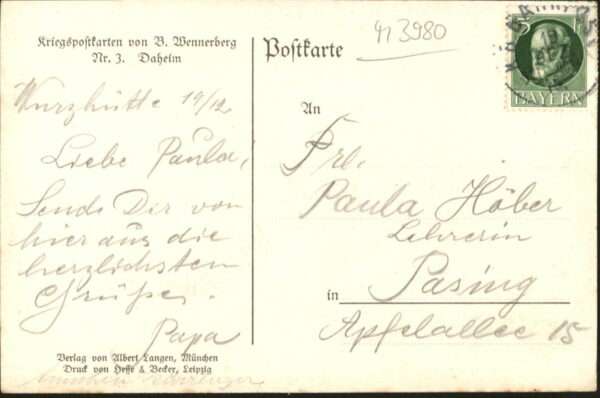 Kriegspostkarten von B. Wennerberg
Nr. 3. Daheim
Postkarte
413980
5
BAYERN
Wurzhütte 19/12
Liebe Paula,
Sende Dir von
hier aus die
herzlichsten
Grüße.
Papa
An
Frl.
Paula Höber
Lehrerin
in Pasing
Apfelallee 15
Verlag von Albert Langen, München
Druck von Hesse & Becker, Leipzig